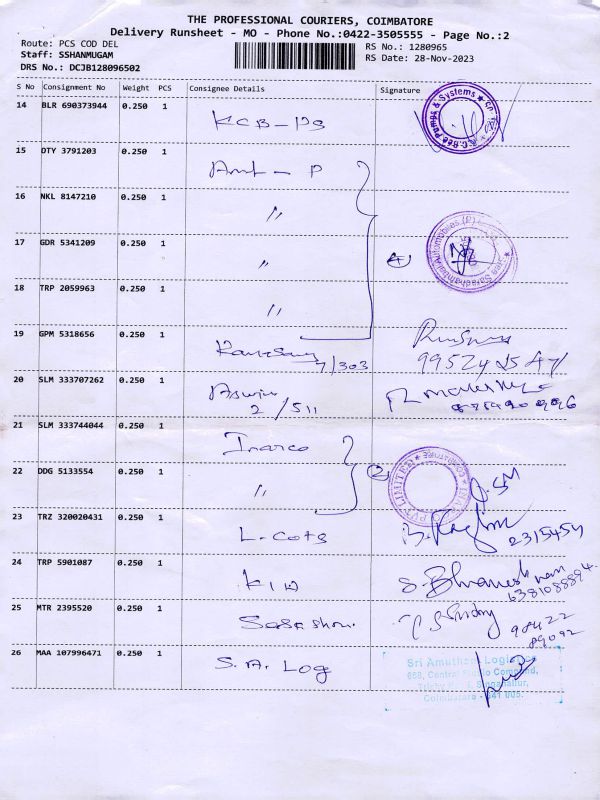 THE PROFESSIONAL COURIERS, COIMBATORE
Delivery Runsheet - MO - Phone No.:0422-3505555 - Page No.:2
Route: PCS COD DEL
Staff: SSHANMUGAM
DRS No.: DCJB128096502
RS No.: 1280965
RS Date: 28-Nov-2023
S No Consignment No Weight PCS Consignee Details Signature
14 BLR 690373944 0.250 1 KCB - Ps
15 DTY 3791203 0.250 1 Amt - P
16 NKL 8147210 0.250 1 "
17 GDR 5341209 0.250 1 " 4
18 TRP 2059963 0.250 1 "
19 GPM 5318656 0.250 1
7/303
20 SLM 333707262 0.250 1 Aswin
2/511
21 SLM 333744044 0.250 1 Inarco
22 DDG 5133554 0.250 1 " 2
23 TRZ 320020431 0.250 1 L. Cots
2315454
24 TRP 5901087 0.250 1
6381088894
25 MTR 2395520 0.250 1
98422
89092
26 MAA 107996471 0.250 1 S. A. Log
Sri Amutham Logistics
Coimbatore - 641 005.